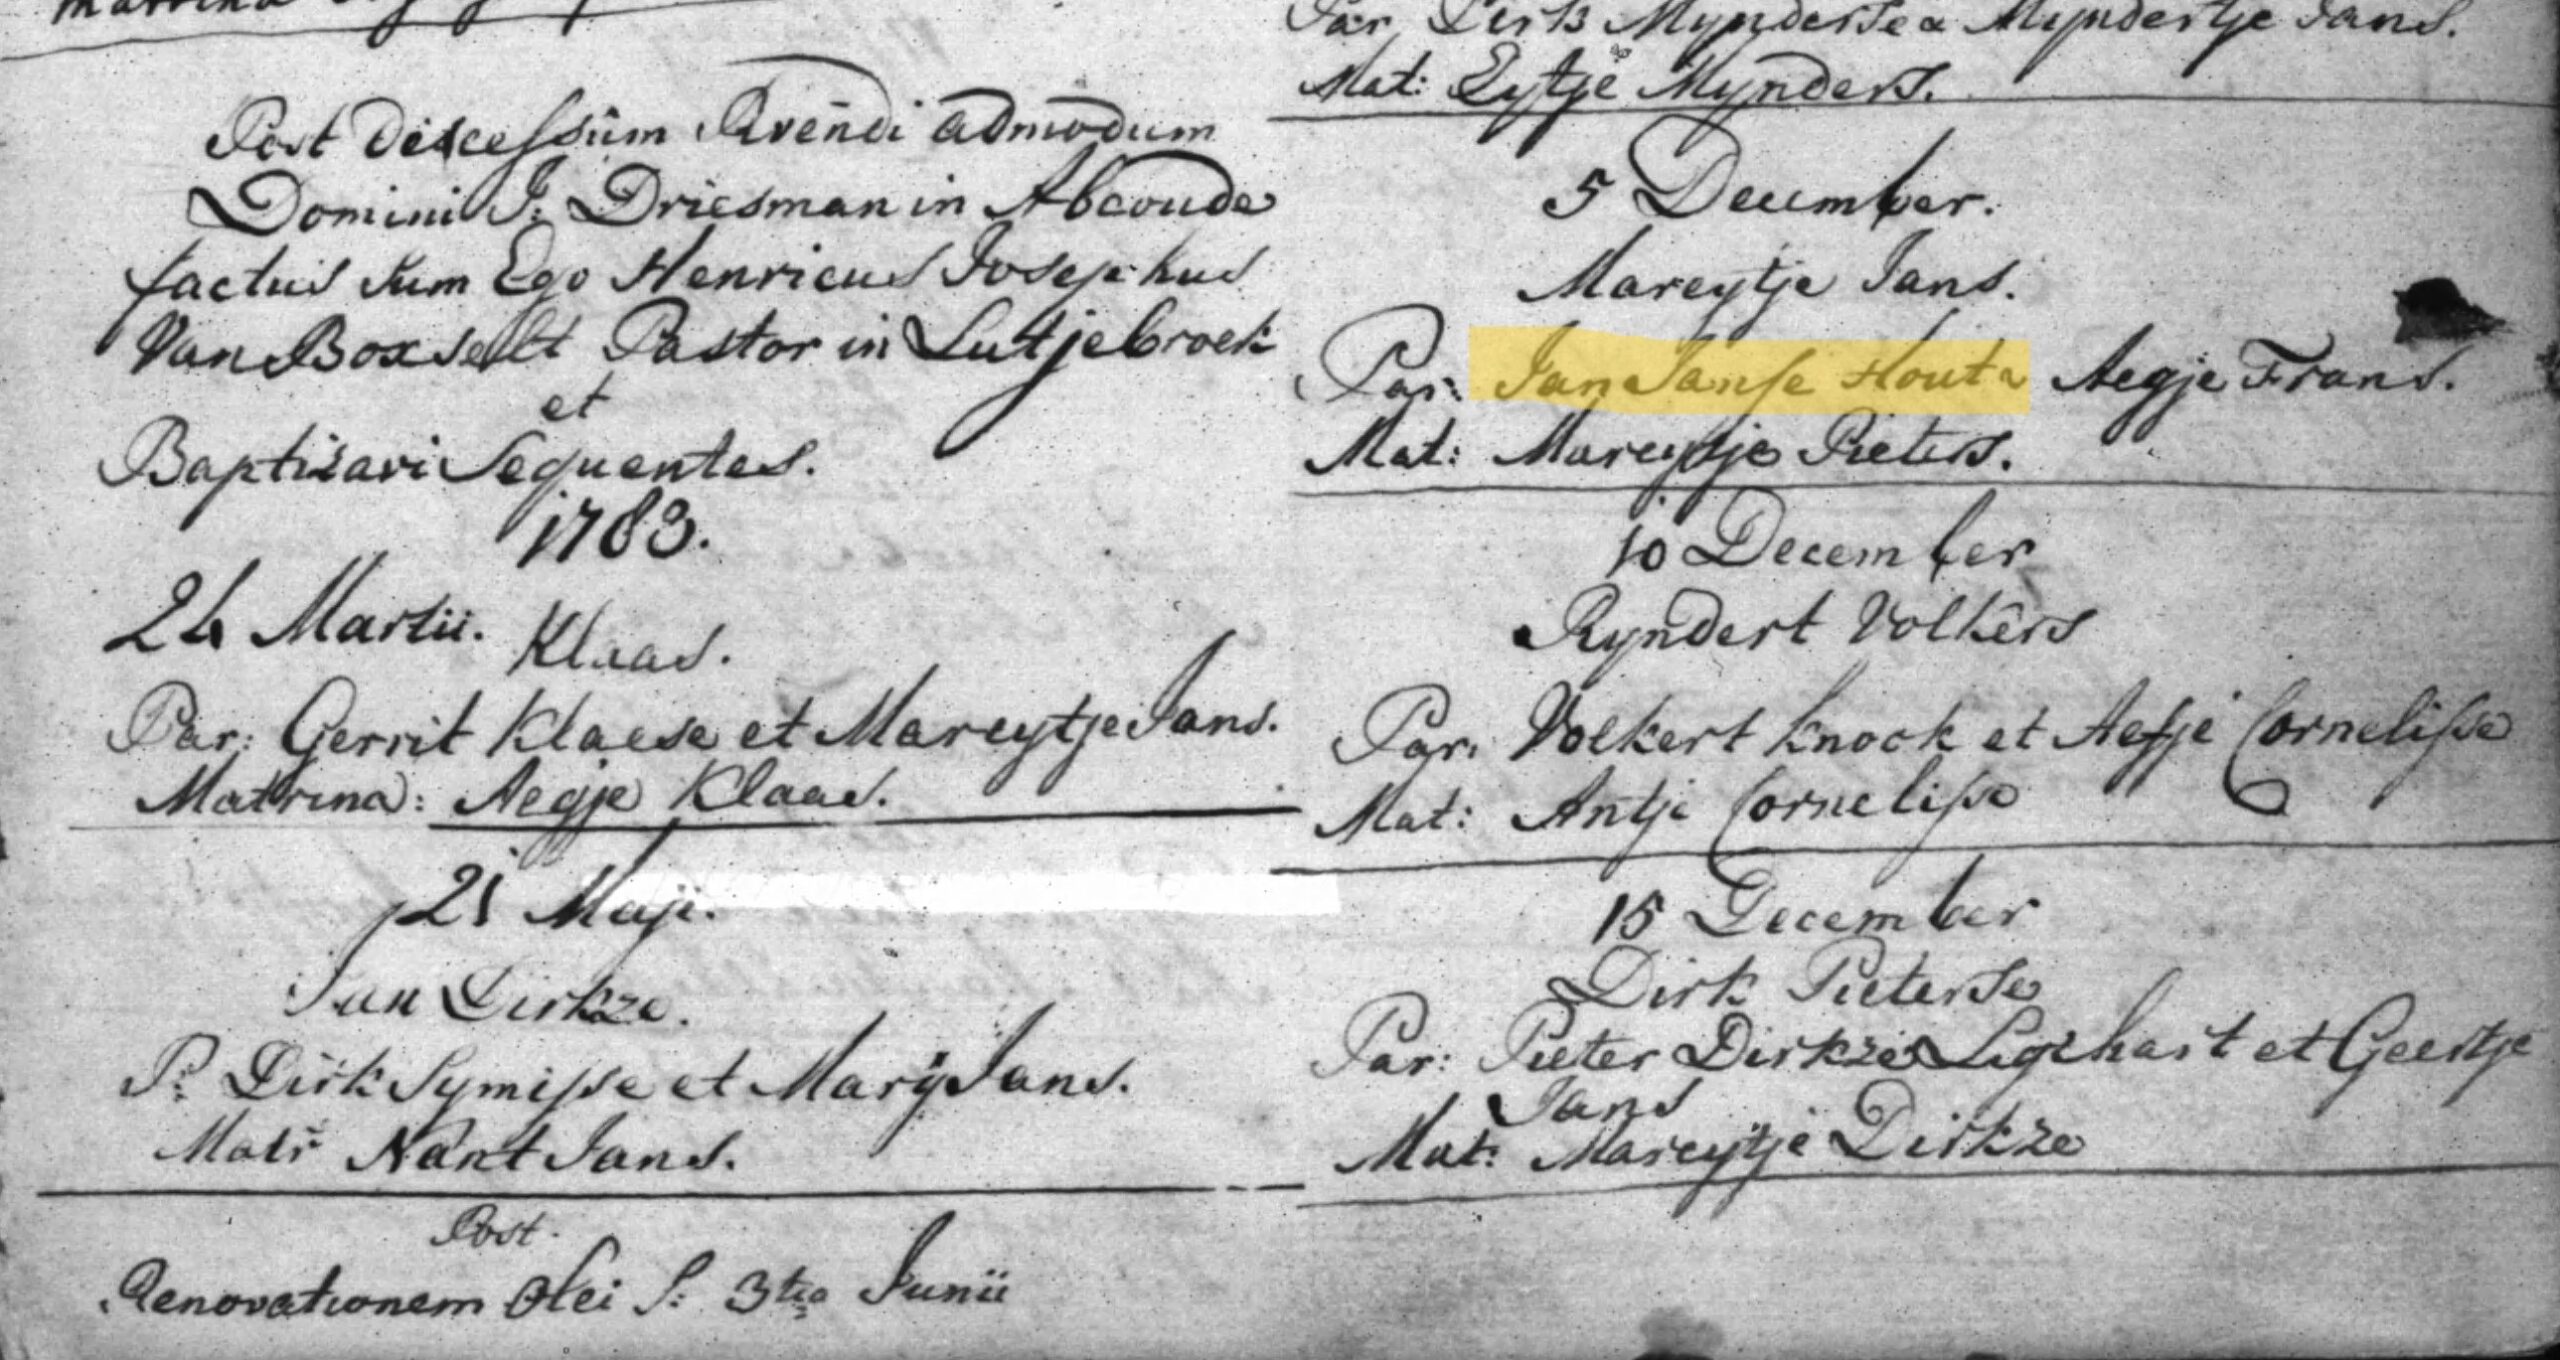 Post discessum Rvendi admodum
Domini J: Driesman in Abcoude
factus sum Ego Henricus Josephus
Van Boxselt Pastor in Lutjebroek
et
Baptizavi Sequentes.
1783.
24 Martii. Klaas.
Par: Gerrit Klaese et Mareytje Jans.
Matrina: Aegje Klaas.
21 Maji.
Jan Dirkze.
P: Dirk Symisse et Marÿ Jans.
Matr Nant Jans.
Post
Renovationem Olei S: 3tia Junii
Par Dirk Mynderse & Myndertje Jans.
Mat: Eytje Mynders.
5 December.
Mareytje Jans.
Par: Jan Janse Hout & Aegje Frans.
Mat: Mareytje Pieters.
10 December
Ryndert Volkers
Par: Volkert Knook et Aefje Cornelisse
Mat: Antje Cornelisse
15 December
Dirk Pieterse
Par: Pieter Dirkze Ligthart et Geertje
Jans
Mat: Mareytje Dirkze